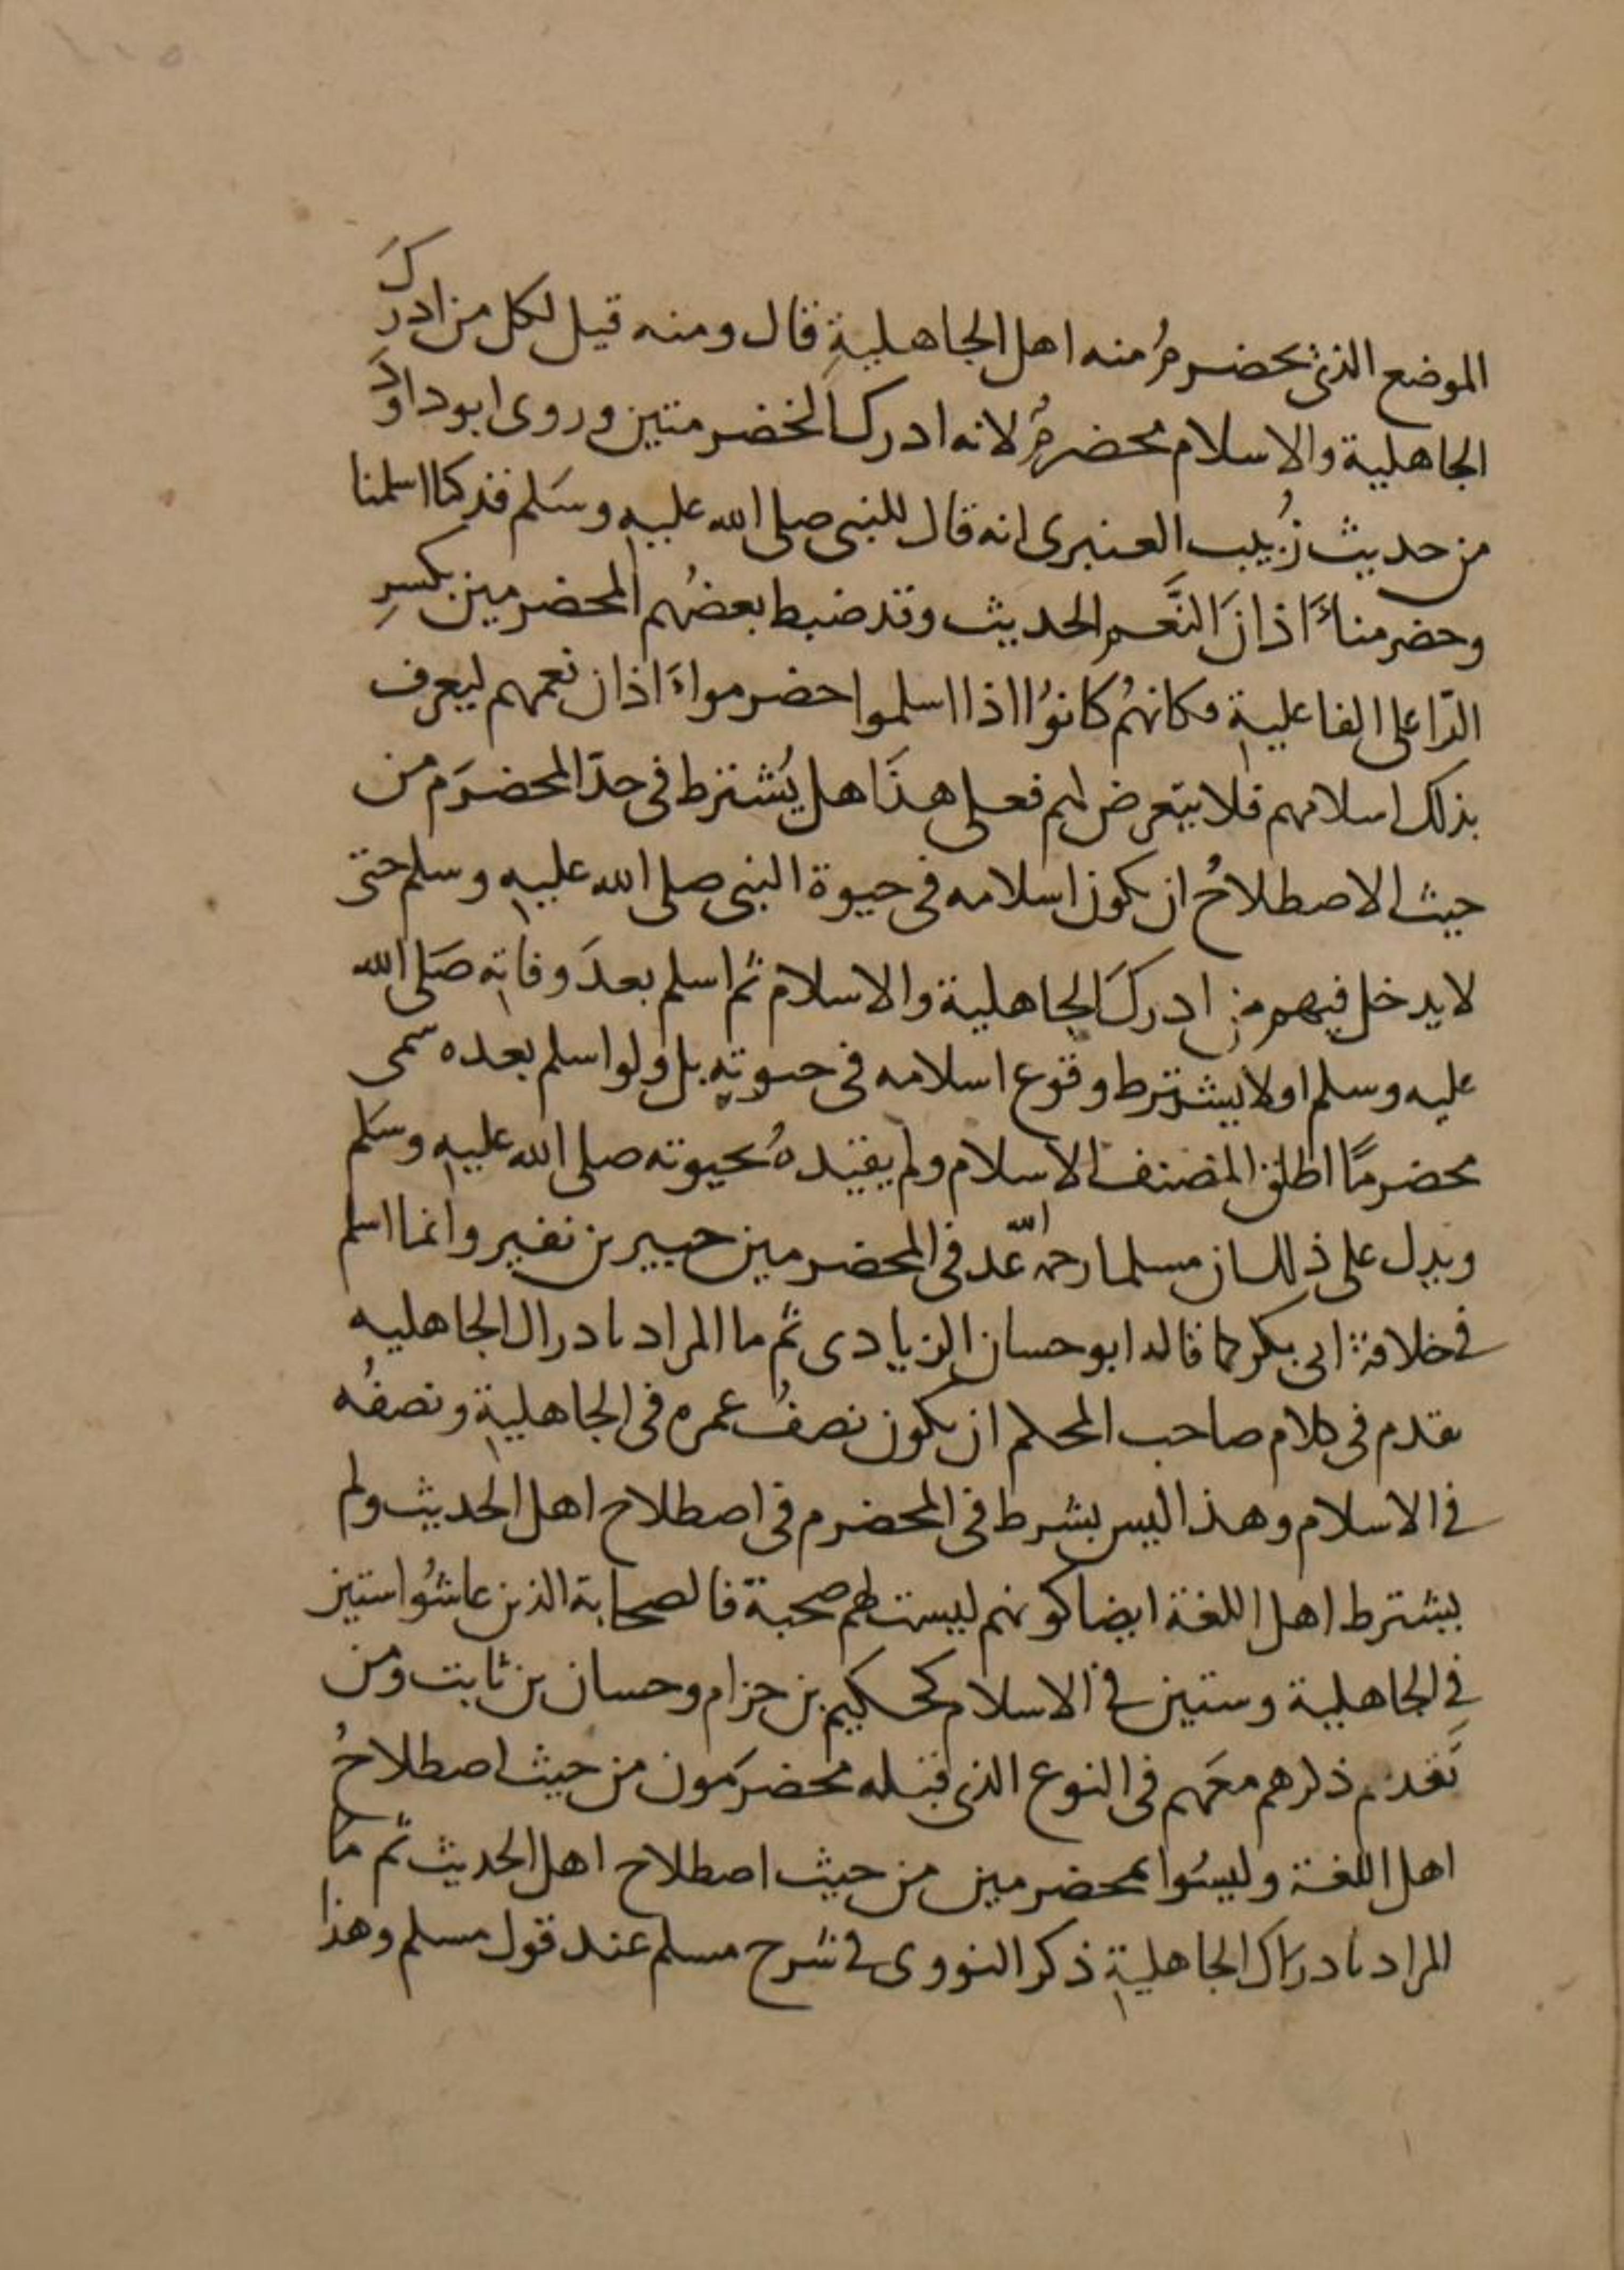 الموضع الذى يخضرمُ منه اهل الجاهليةِ قال ومنه قيل لكل من ادركَ
الجاهلية والاسلام مخضرمٌ لانه ادرك الخضرمتين وروى ابو داوَد
من حديث زُبيب العنبرى انه قال للنبى صلى الله عليه وسَلم قد كنا اسلمنا
وخضرمناَ اذانَ النَّعم الحديث وقد ضبط بعضُهم المخضرمين بكسرِ
الرّا على الفاعلية وكانهُم كانوُا اذا اسلموا خضرموا اذان نعمهم ليعرف
بذلك اسلامهم فلا يتعرض لهم فعلى هذَا هل يُشترط فى حدّ المخضرَم من
حيث الاصطلاحُ ان يكون اسلامه فى حيوة النبى صلى الله عليه وسلم حتى
لا يدخل فيهم من ادركَ الجاهلية والاسلام ثم اسلم بعدَ وفاته صَلى الله
عليه وسلم اولا يشترط وقوع اسلامه فى حيوته بل ولو اسلم بعده سمى
مخضرمًا اطلق المصنف الاسلام ولم يقيّدهُ بحيوته صلى الله عليه وسَلم
ويدل على ذلك ان مسلما رحمه الله عّد فى المخضرمين جبير بن نفير وانما اسلم
فى خلافة ابى بكر كما قاله ابو حسان الزيادى ثم ما المراد بادراك الجاهليه
تقدم فى كلام صاحب المحكم ان يكون نصفُ عمره فى الجاهلية ونصفُه
فى الاسلام وهذا ليس بشرط فى المخضرم فى اصطلاح اهل الحديث ولم
يشترط اهل اللغة ايضا كونهم ليست لهم صحبة فالصحابة الذين عاشُوا ستين
فى الجاهلية وستين فى الاسلام كحكيم بن حزام وحسان بن ثابت ومن
تَقدم ذكرهم معَهم فى النوع الذى قبله مخضرَمون من حيث اصطلاحُ
اهل اللغة وليسُوا بمخضرمين من حيث اصطلاح اهل الحديث ثم ما
المراد بادراك الجاهلية ذكر النووى فى شرح مسلم عند قول مسلم وهذا